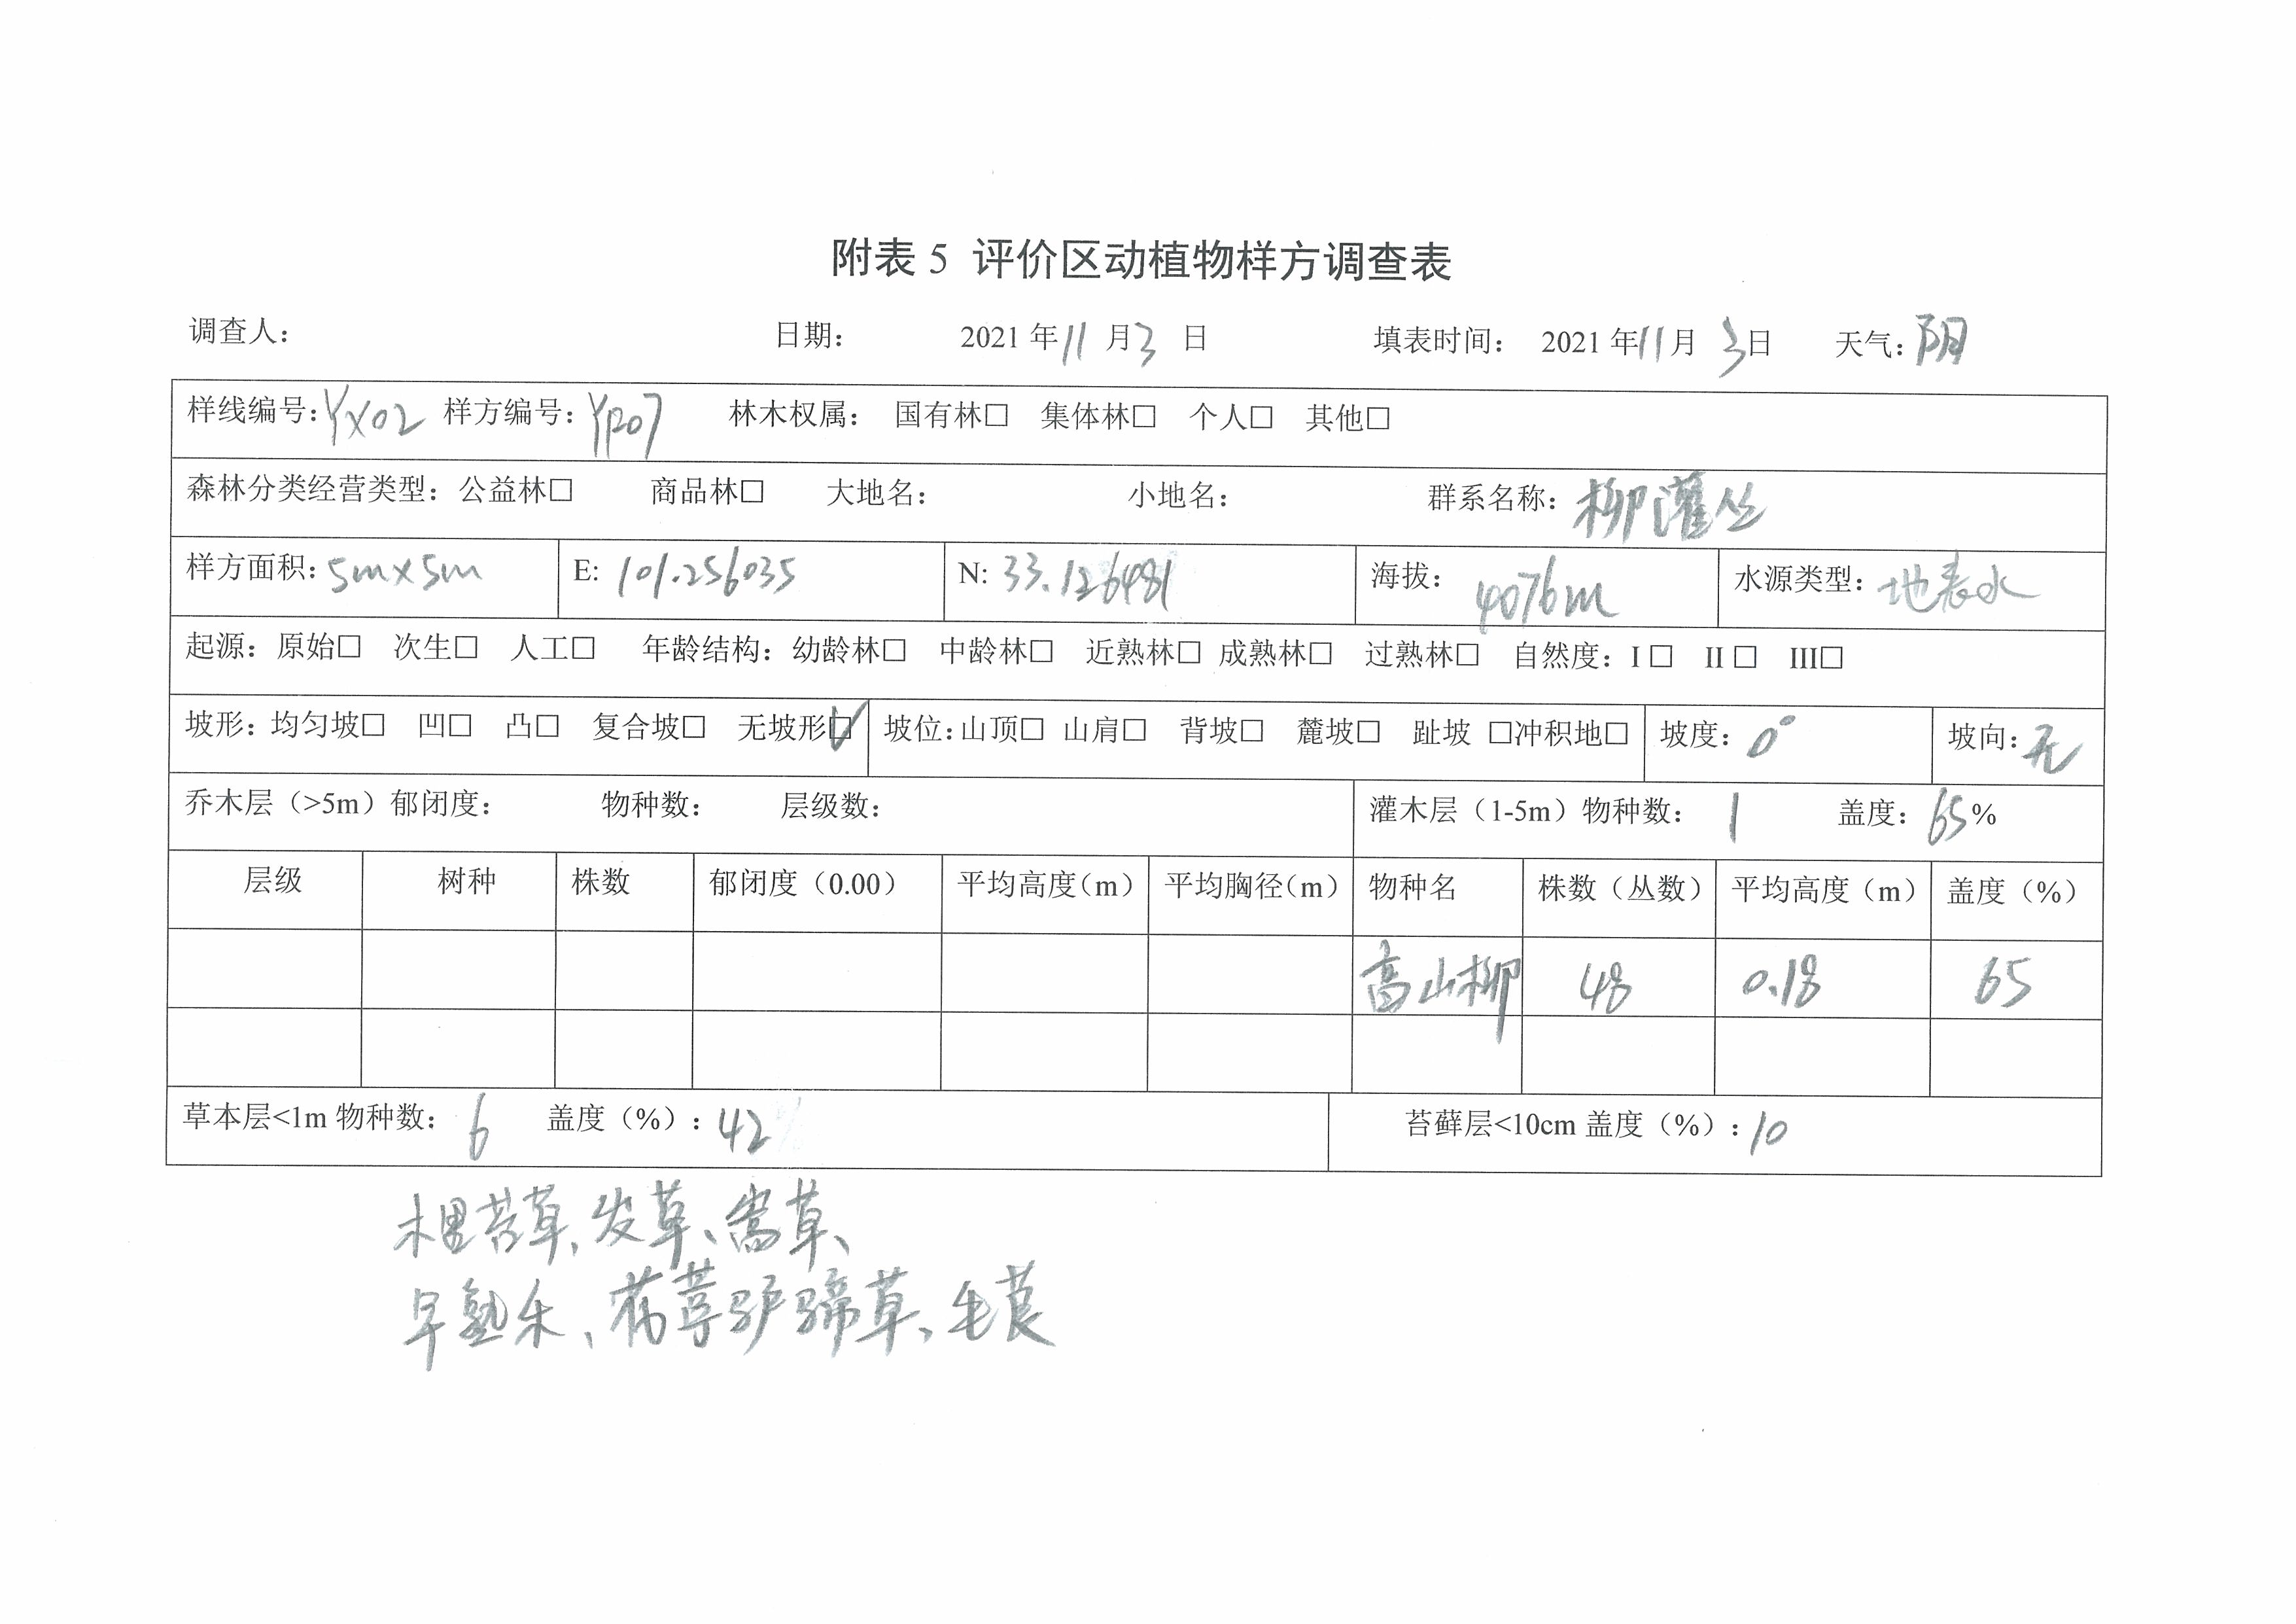 附表 5 评价区动植物样方调查表
调查人： 日期： 2021 年 11 月 3 日 填表时间： 2021 年 11 月 3 日 天气：阴
样线编号：YX02 样方编号：YP07 林木权属： 国有林□ 集体林□ 个人□ 其他□
森林分类经营类型：公益林□ 商品林□ 大地名： 小地名： 群系名称：柳灌丛
样方面积：5m×5m E: 101.256035 N: 33.126481 海拔：4076m 水源类型：地表水
起源：原始□ 次生□ 人工□ 年龄结构：幼龄林□ 中龄林□ 近熟林□ 成熟林□ 过熟林□ 自然度：I □ II □ III□
坡形：均匀坡□ 凹□ 凸□ 复合坡□ 无坡形☑ 坡位：山顶□ 山肩□ 背坡□ 麓坡□ 趾坡 □冲积地□ 坡度：0° 坡向：无
乔木层（>5m）郁闭度： 物种数： 层级数： 灌木层（1-5m）物种数： 1 盖度：65%
层级 树种 株数 郁闭度（0.00） 平均高度（m） 平均胸径（m） 物种名 株数（丛数） 平均高度（m） 盖度（%）
高山柳 48 0.18 65
草本层<1m 物种数： 6 盖度（%）：42 苔藓层<10cm 盖度（%）：10
苔草、发草、嵩草、
早熟禾、驴蹄草、毛茛